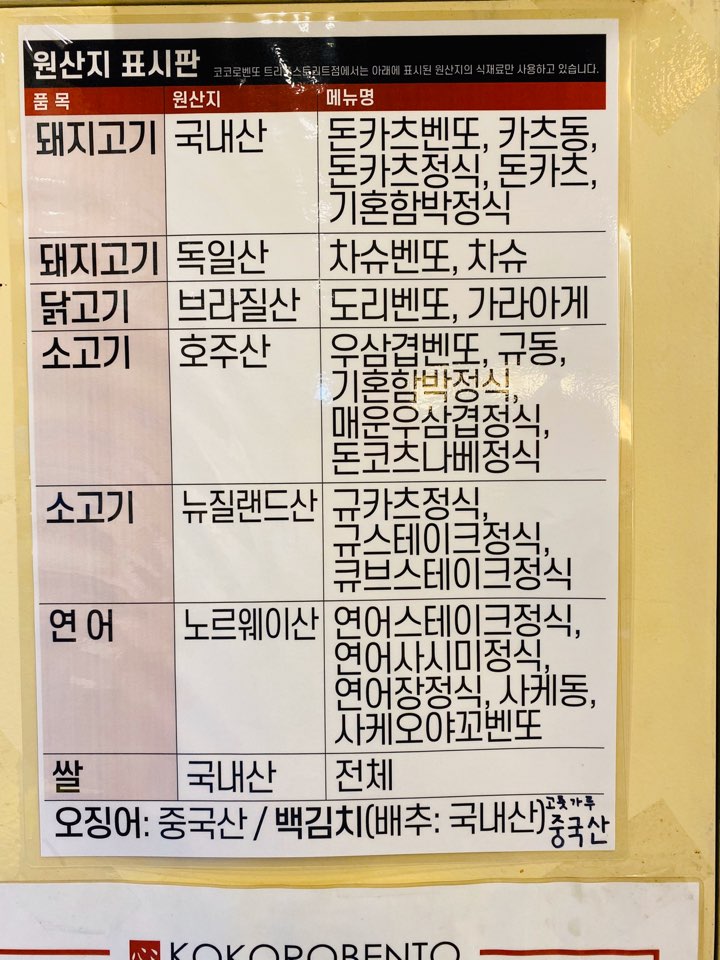 원산지 표시판 코코로벤또 트리플스트리트점에서는 아래에 표시된 원산지의 식재료만 사용하고 있습니다.
품 목 원산지 메뉴명
돼지고기 국내산 돈카츠벤또, 카츠동,
돈카츠정식, 돈카츠,
기혼함박정식
돼지고기 독일산 차슈벤또, 차슈
닭고기 브라질산 도리벤또, 가라아게
소고기 호주산 우삼겹벤또, 규동,
기혼함박정식,
매운우삼겹정식,
돈코츠나베정식
소고기 뉴질랜드산 규카츠정식,
규스테이크정식,
큐브스테이크정식
연 어 노르웨이산 연어스테이크정식,
연어사시미정식,
연어장정식, 사케동,
사케오야꼬벤또
쌀 국내산 전체
오징어: 중국산 / 백김치(배추: 국내산) 고춧가루
중국산
KOKOROBENTO